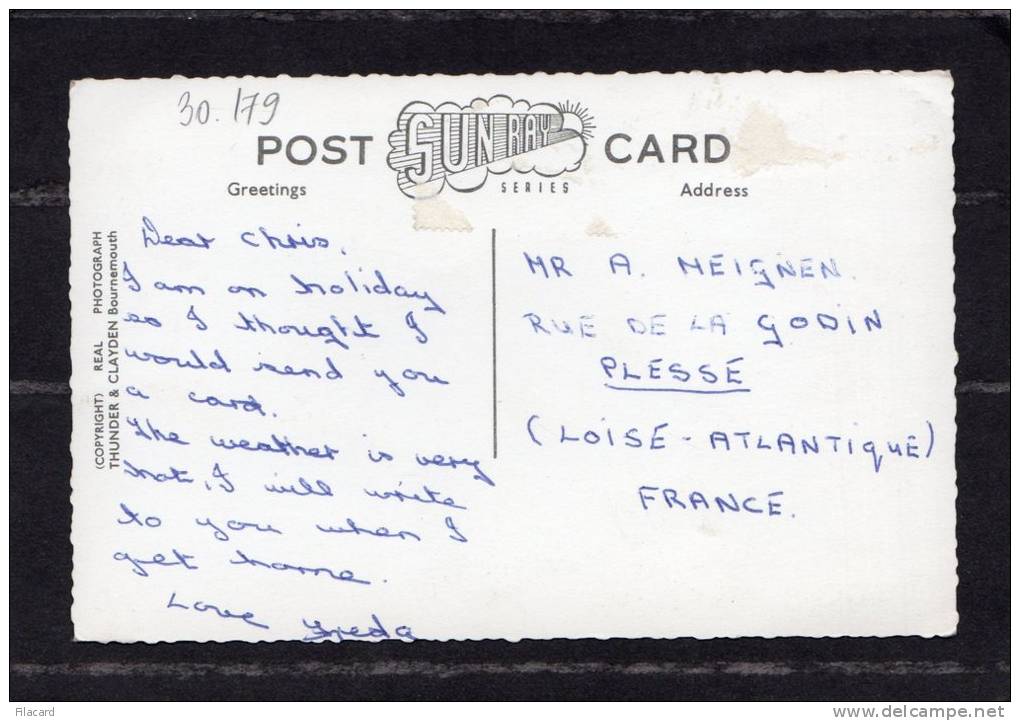 30.179
POST SUN RAY CARD
SERIES
Greetings
Address
(COPYRIGHT) REAL PHOTOGRAPH
THUNDER & CLAYDEN Bournemouth
Dear Chris,
I am on holiday
so I thought I
would send you
a card.
The weather is very
hot, I will write
to you when I
get home.
Love Freda
MR A. MEIGNEN.
RUE DE LA GODIN
PLESSÉ
(LOISE-ATLANTIQUE)
FRANCE.
Filacard
www.delcampe.net